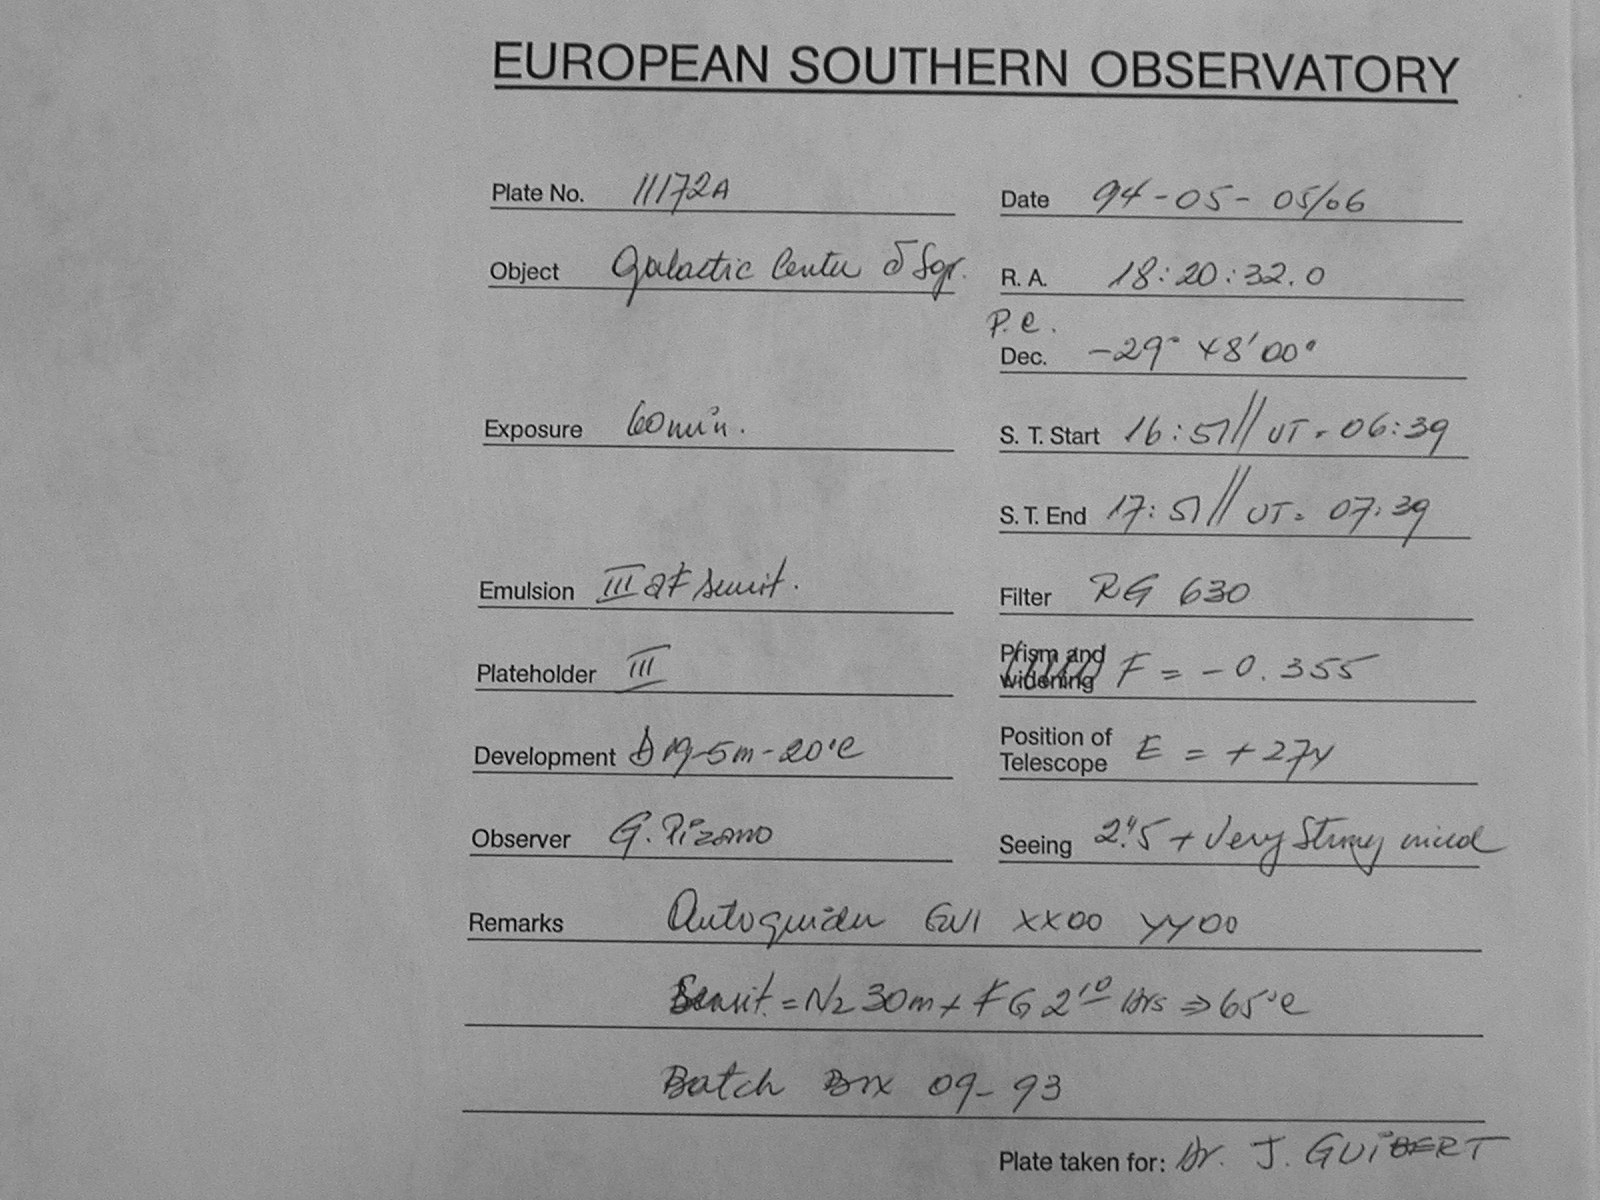 EUROPEAN SOUTHERN OBSERVATORY
Plate No. 11172A
Date 94-05-05/06
Object Galactic Center δ Sgr.
R. A. 18:20:32.0
P.e.
Dec. -29° 48' 00"
Exposure 60 min.
S. T. Start 16:51 // UT = 06:39
S. T. End 17:51 // UT = 07:39
Emulsion III aF sensit.
Filter RG 630
Plateholder III
Prism and widening F = -0.355
Development D19-5m-20°C
Position of Telescope E = +274
Observer G. Pizarro
Seeing 2".5 + Very Strong wind
Remarks Autoguider GW1 XX00 YY00
Sensit. = N2 30m + FG 2 10 hrs ⇒ 65°C
Batch Box 09-93
Plate taken for: Dr. J. GUIBERT